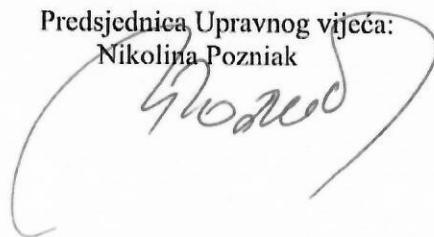 Predsjednica Upravnog vijeća:
Nikolina Pozniak